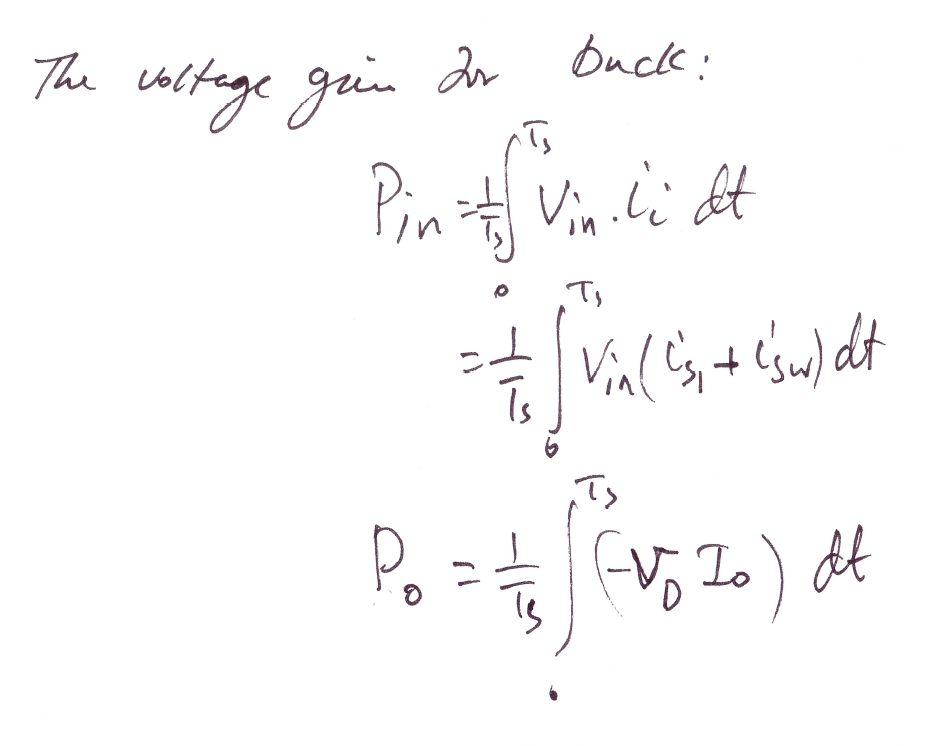 The voltage gain for buck:
P_in = 1/T_s ∫_0^{T_s} V_in . i_i dt
= 1/T_s ∫_0^{T_s} V_in (i_{S_1} + i_{Sw}) dt
P_o = 1/T_s ∫_0^{T_s} (-V_D I_o) dt